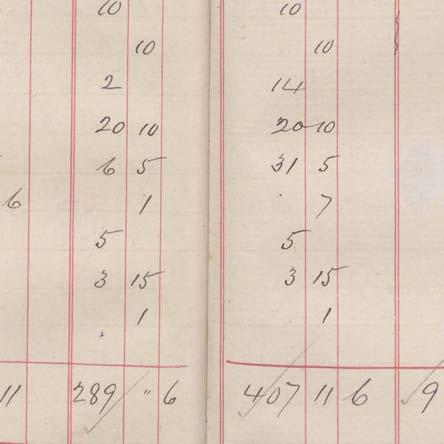 10 10
10 10
2 14
20 10 20 10
6 5 31 5
6 1 7
5 5
3 15 3 15
1 1
11 289 " 6 407 11 6 9